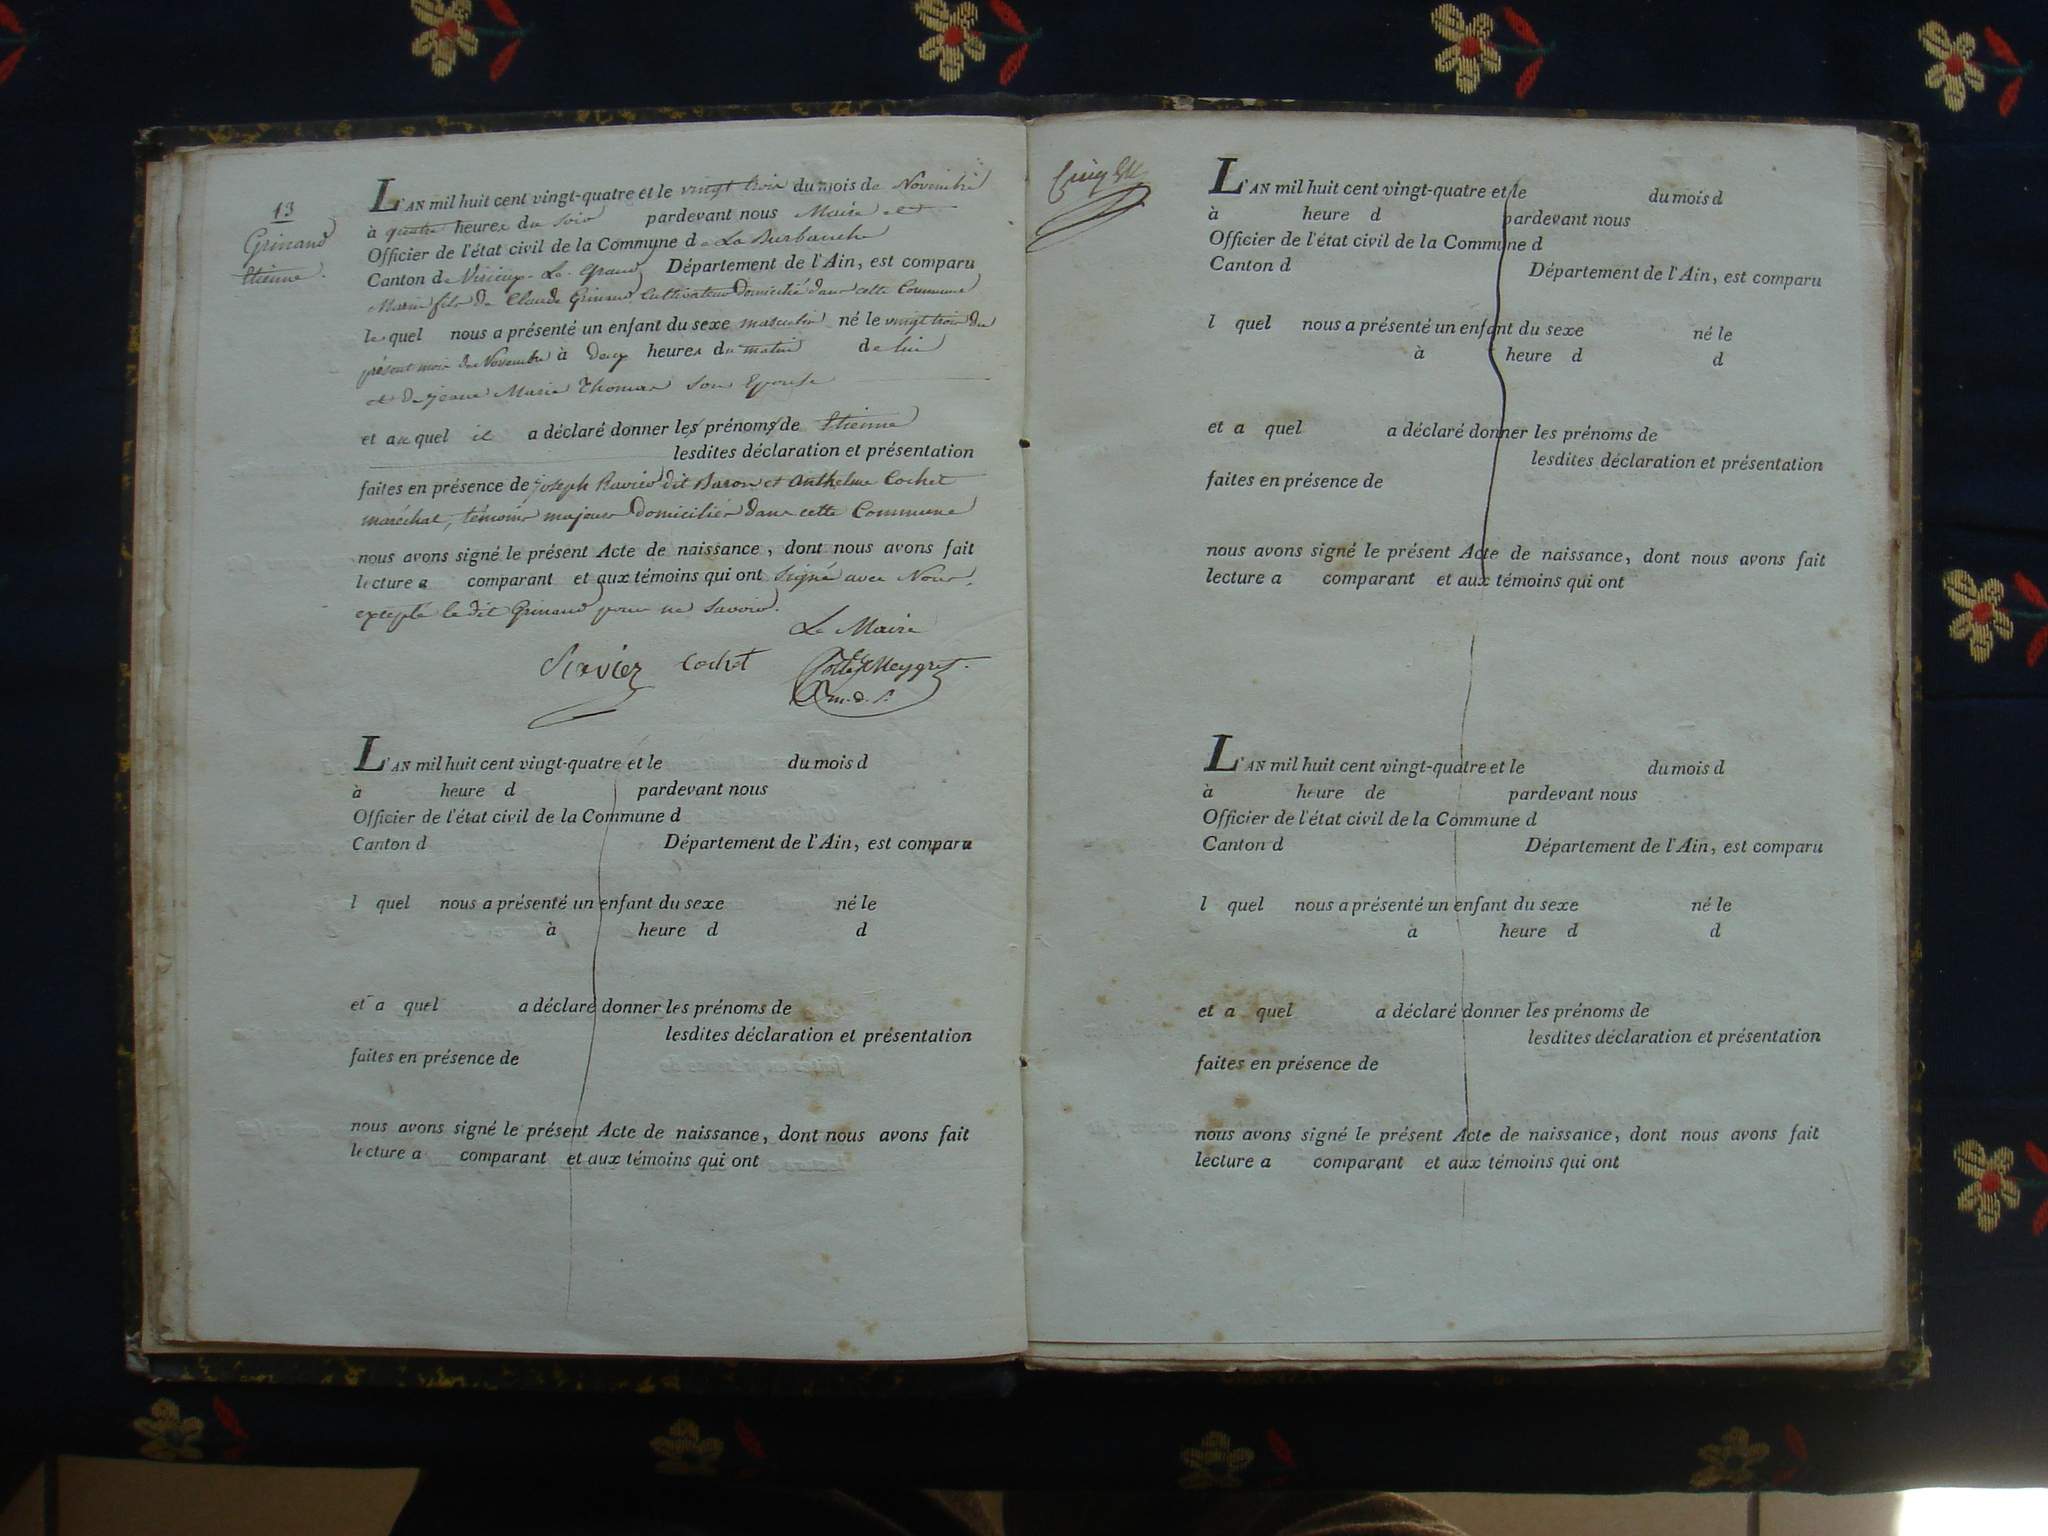 13
Grinand
Etienne.
L'AN mil huit cent vingt-quatre et le vingt trois du mois de Novembre
à quatre heures du soir pardevant nous Maire et
Officier de l'état civil de la Commune de La Burbanche
Canton de Virieu-Le-Grand Département de l'Ain, est comparu
Marin fils de Claude Grinand Cultivateur Domicilié dans cette Commune
lequel nous a présenté un enfant du sexe masculin né le vingt trois du
présent mois de Novembre à deux heures du matin de lui
et de jeanne Marie Thomas son Epouse
et auquel il a déclaré donner les prénoms de Etienne
lesdites déclaration et présentation
faites en présence de joseph Ravier dit Baron et Anthelme Cochet
maréchal, témoins majeurs Domiciliés dans cette Commune
nous avons signé le présent Acte de naissance, dont nous avons fait
lecture a comparant et aux témoins qui ont signé avec Nous,
excepté le dit Grinand pour ne savoir.
Le Maire
Ravier Cochet
L'AN mil huit cent vingt-quatre et le du mois d
à heure d pardevant nous
Officier de l'état civil de la Commune d
Canton d Département de l'Ain, est comparu
l quel nous a présenté un enfant du sexe né le
à heure d d
et a quel a déclaré donner les prénoms de
lesdites déclaration et présentation
faites en présence de
nous avons signé le présent Acte de naissance, dont nous avons fait
lecture a comparant et aux témoins qui ont
L'AN mil huit cent vingt-quatre et le du mois d
à heure d pardevant nous
Officier de l'état civil de la Commune d
Canton d Département de l'Ain, est comparu
l quel nous a présenté un enfant du sexe né le
à heure d d
et a quel a déclaré donner les prénoms de
lesdites déclaration et présentation
faites en présence de
nous avons signé le présent Acte de naissance, dont nous avons fait
lecture a comparant et aux témoins qui ont
L'AN mil huit cent vingt-quatre et le du mois d
à heure de pardevant nous
Officier de l'état civil de la Commune d
Canton d Département de l'Ain, est comparu
l quel nous a présenté un enfant du sexe né le
à heure d d
et a quel a déclaré donner les prénoms de
lesdites déclaration et présentation
faites en présence de
nous avons signé le présent Acte de naissance, dont nous avons fait
lecture a comparant et aux témoins qui ont